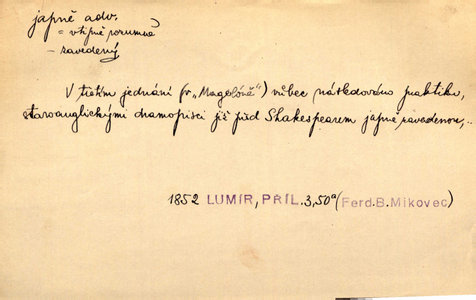 japně adv.
= vtipně rozumně
- zavedený
V tickém jednání (v „Magelóně“) vůbec následováno praktiku,
staroanglickými dramopisci již před Shakespearem japně zavedenou,..
1852 LUMÍR, PŘÍL. 3,50a (Ferd.B.Mikovec)